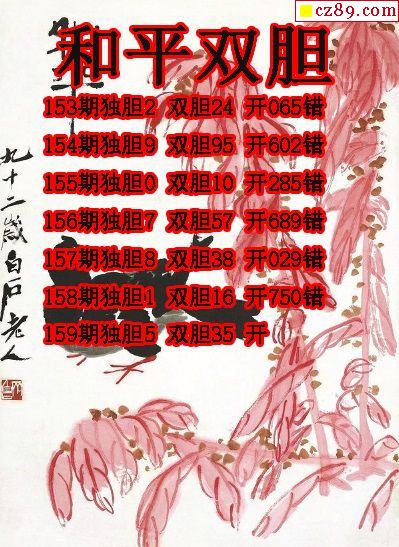 cz89.com
和平双胆
153期独胆2 双胆24 开065错
154期独胆9 双胆95 开602错
155期独胆0 双胆10 开285错
156期独胆7 双胆57 开689错
157期独胆8 双胆38 开029错
158期独胆1 双胆16 开750错
159期独胆5 双胆35 开
九十二岁白石老人